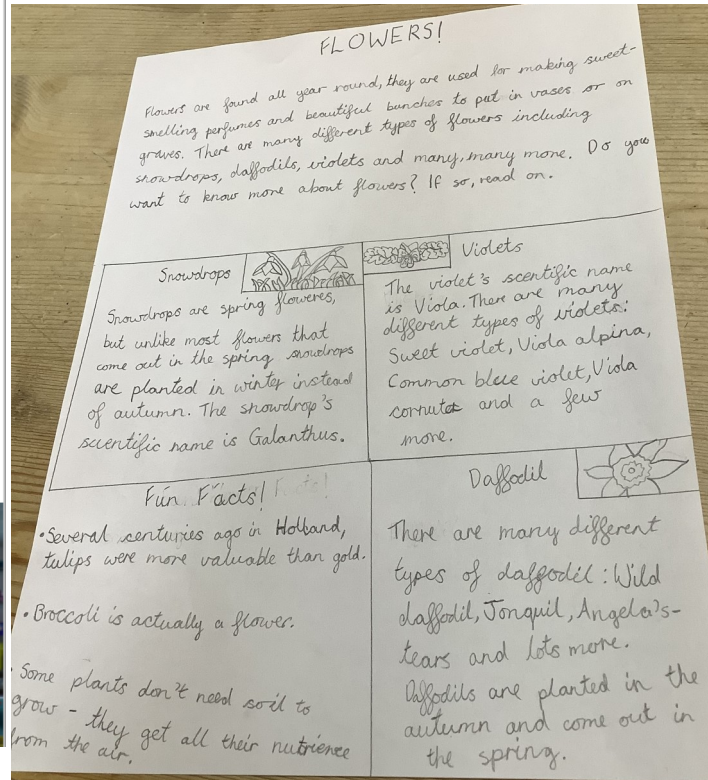 FLOWERS!
Flowers are found all year round, they are used for making sweet-
smelling perfumes and beautiful bunches to put in vases or on
graves. There are many different types of flowers including
snowdrops, daffodils, violets and many, many more. Do you
want to know more about flowers? If so, read on.
Snowdrops
Snowdrops are spring floweres,
but unlike most flowers that
come out in the spring snowdrops
are planted in winter instead
of autumn. The snowdrop's
scientific name is Galanthus.
Violets
The violet's scentific name
is Viola. There are many
different types of violets:
Sweet violet, Viola alpina,
Common blue violet, Viola
cornuta and a few
more.
Fun Facts!
•Several centuries ago in Holland,
tulips were more valuable than gold.
•Broccoli is actually a flower.
•Some plants don't need soil to
grow - they get all their nutrience
from the air.
Daffodil
There are many different
types of daffodil: Wild
daffodil, Jonquil, Angela's-
tears and lots more.
Daffodils are planted in the
autumn and come out in
the spring.